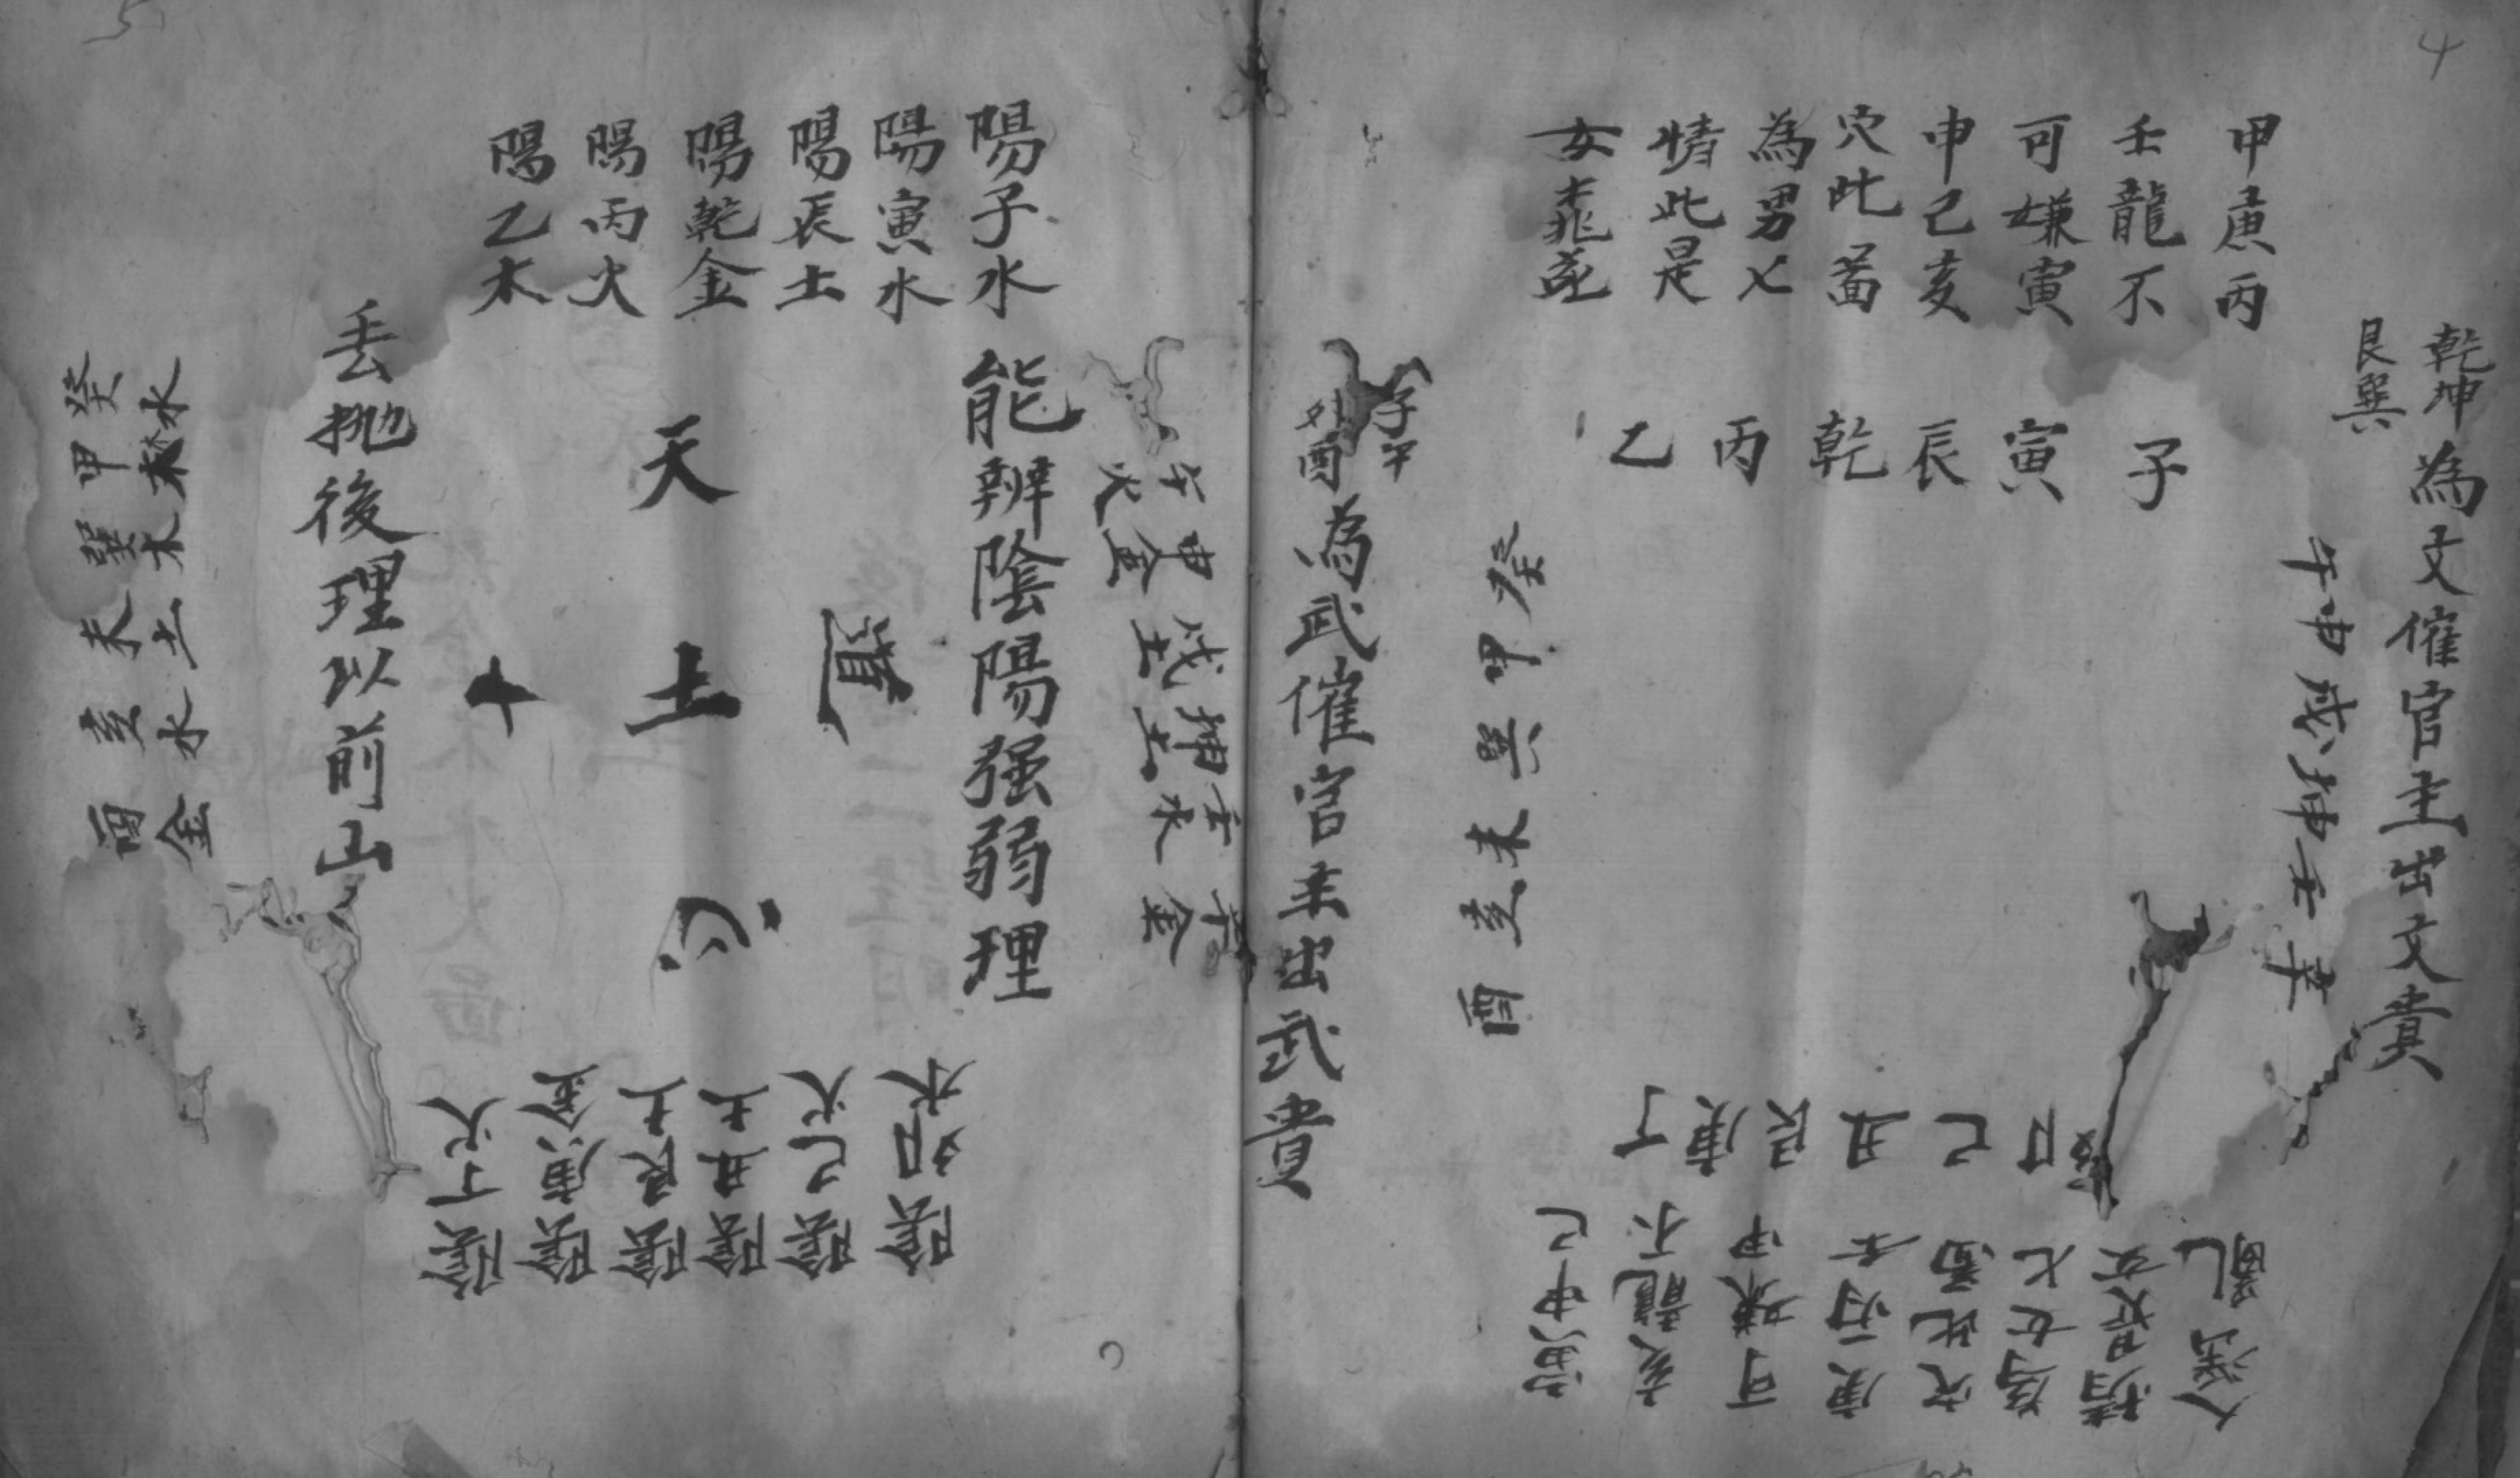 4
乾坤
艮巽
為文催官主出文貴
甲庚丙
壬龍不
可嫌寅
申己亥
穴此葬
為男七
情此是
女
子
寅
辰
乾
丙
乙
午申戌坤壬辛
癸甲巽未亥酉
卯
巳
丑
艮
庚
丁
亂
人淫
情是女
為女七
穴此
庚
可嫌甲
亥龍不
寅申己
子午
卯酉
為武催官主出武貴
5
午火
申金
戌土
坤土
壬水
辛金
陽子水
陽寅水
陽辰土
陽乾金
陽丙火
陽乙木
能辨陰陽强弱理
天
土
心
十
丟抛後理以前山
陰卯木
陰己火
陰丑土
陰艮土
陰庚金
陰丁火
癸水
甲木
巽木
未土
亥水
酉金